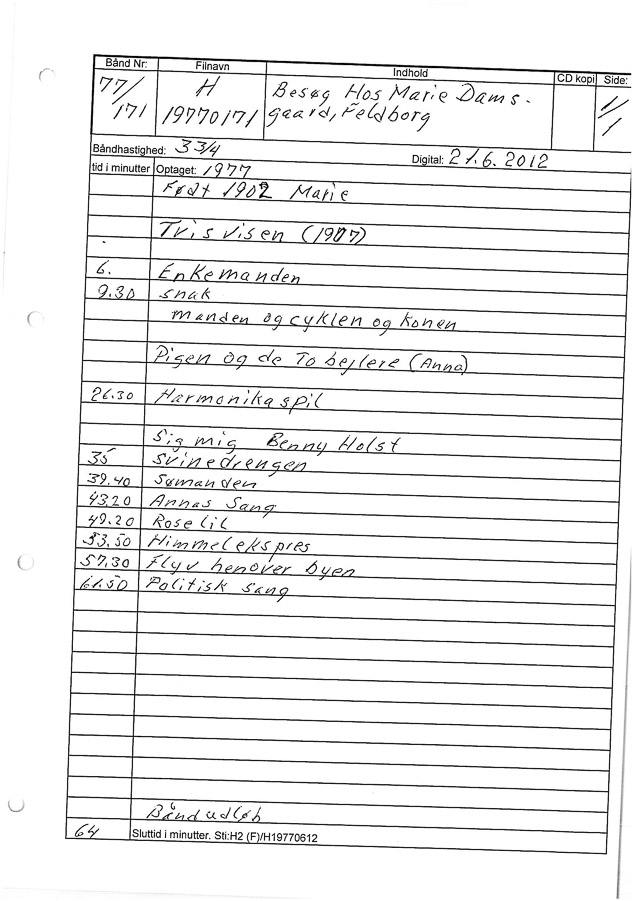 Bånd Nr: Filnavn Indhold CD kopi Side:
77/ H Besøg Hos Marie Dams- 1/
171 19770171 gaard, Feldborg 1
Båndhastighed: 33/4 Digital: 21.6.2012
tid i minutter Optaget: 1977
Født 1902 Marie
Tvis visen (1977)
6. Enkemanden
9.30 snak
manden og cyklen og konen
Pigen og de To bejlere (Anna)
26.30 Harmonikaspil
Sig mig Benny Holst
35 Svinedrengen
39.40 Sømanden
43.20 Annas Sang
49.20 Roselil
53.50 Himmelekspres
57.30 Flyv henover byen
61.50 Politisk sang
Båndudløb
64 Sluttid i minutter. Sti:H2 (F)/H19770612